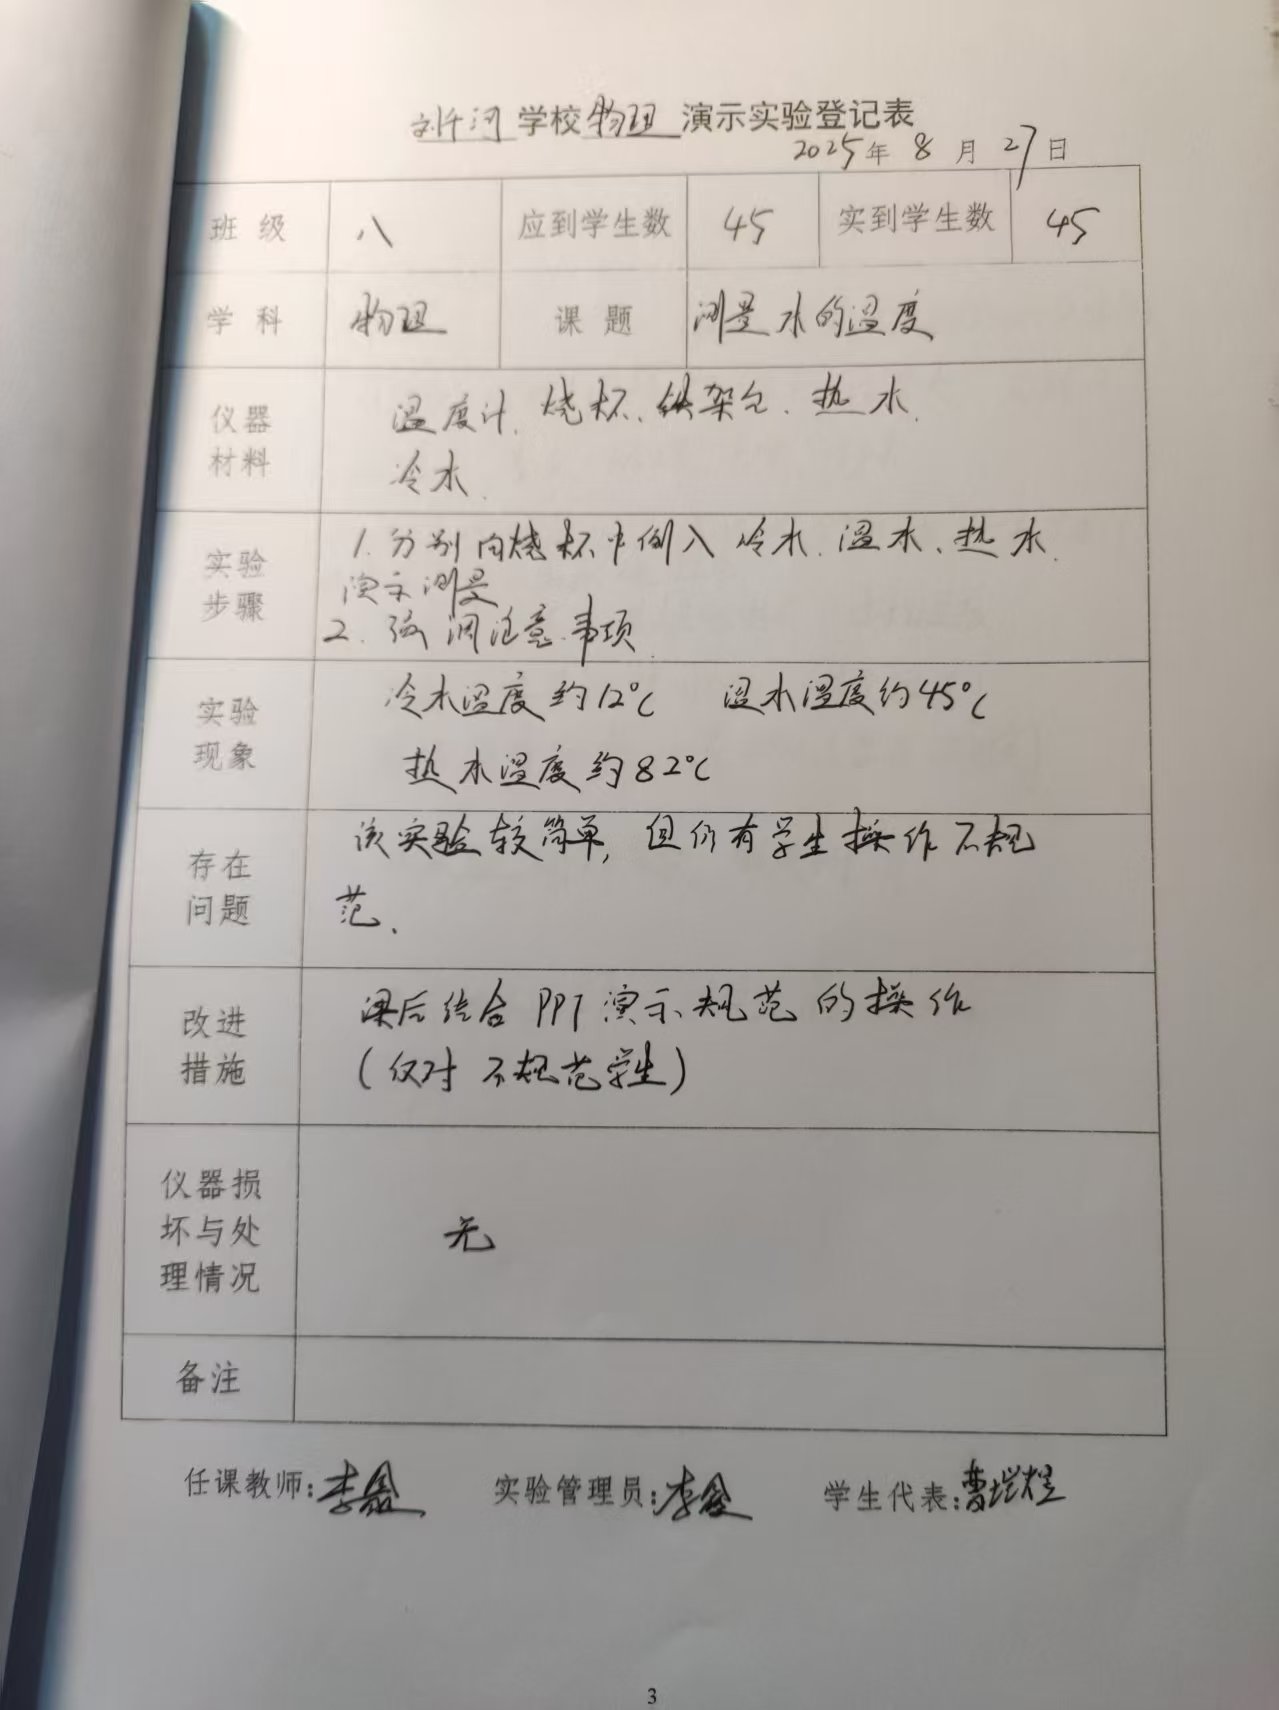 刘千河学校物理演示实验登记表
2025年 8 月 27日
班 级 八 应到学生数 45 实到学生数 45
学 科 物理 课 题 测量水的温度
仪器材料 温度计、烧杯、铁架台、热水、
冷水、
实验步骤 1.分别向烧杯中倒入冷水、温水、热水、
演示测量
2.强调注意事项
实验现象 冷水温度约12℃ 温水温度约45℃
热水温度约82℃
存在问题 该实验较简单,但仍有学生操作不规
范、
改进措施 课后结合PPT演示规范的操作
(仅对不规范学生)
仪器损坏与处理情况 无
备注
任课教师:李鑫 实验管理员:李鑫 学生代表:曹
3